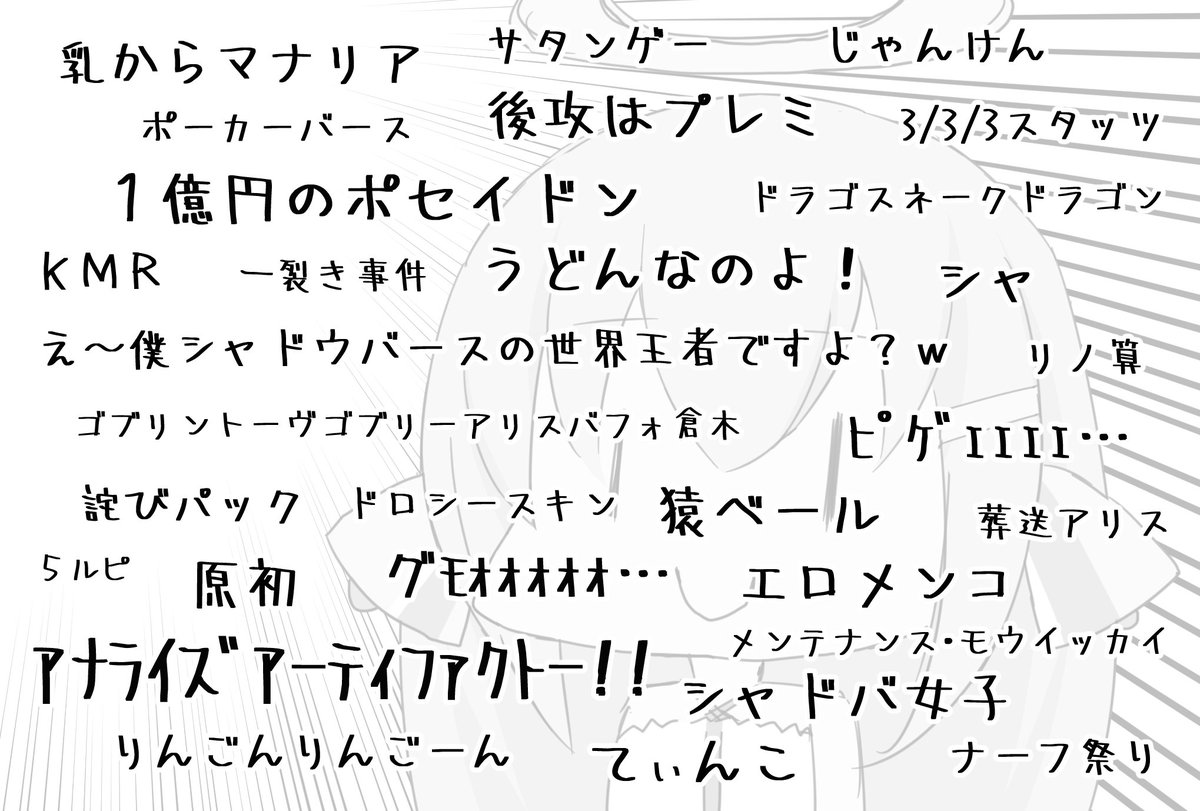 乳からマナリア
サタンゲー
じゃんけん
ポーカーバース
後攻はプレミ
3/3/3スタッツ
1億円のポセイドン
ドラゴスネークドラゴン
KMR
一裂き事件
うどんなのよ！
シャ
え～僕シャドウバースの世界王者ですよ？w
リノ算
ゴブリントーヴゴブリーアリスバフォ倉木
ピゲｴｴｴｴ…
詫びパック
ドロシースキン
猿ベール
葬送アリス
5ルピ
原初
グモｵｵｵｵｵ…
エロメンコ
ｱﾅﾗｲｽﾞｱｰﾃｨﾌｧｸﾄｰ!!
メンテナンス・モウイッカイ
シャドバ女子
りんごんりんごーん
てぃんこ
ナーフ祭り